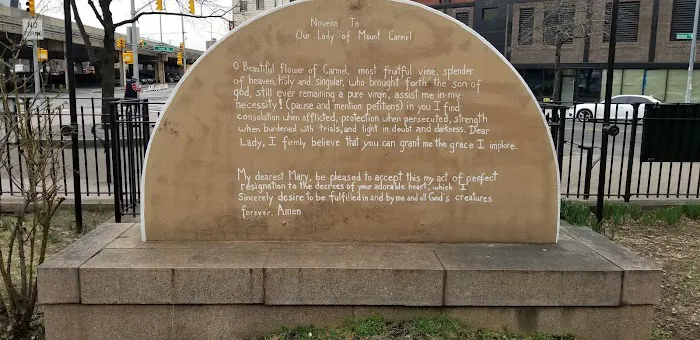 NO
Novena To
Our Lady of Mount Carmel
O Beautiful flower of Carmel, most fruitful vine, splendor
of heaven, holy and singular, who brought forth the son of
god, still ever remaining a pure virgin, assist me in my
necessity! (pause and mention petitions) in you I find
consolation when afflicted, protection when persecuted, strength
when burdened with trials, and light in doubt and darkness. Dear
Lady, I firmly believe that you can grant me the grace I implore.
My dearest Mary, be pleased to accept this my act of perfect
resignation to the decrees of your adorable heart, which I
Sincerely desire to be fulfilled in and by me and all God's creatures
forever. Amen